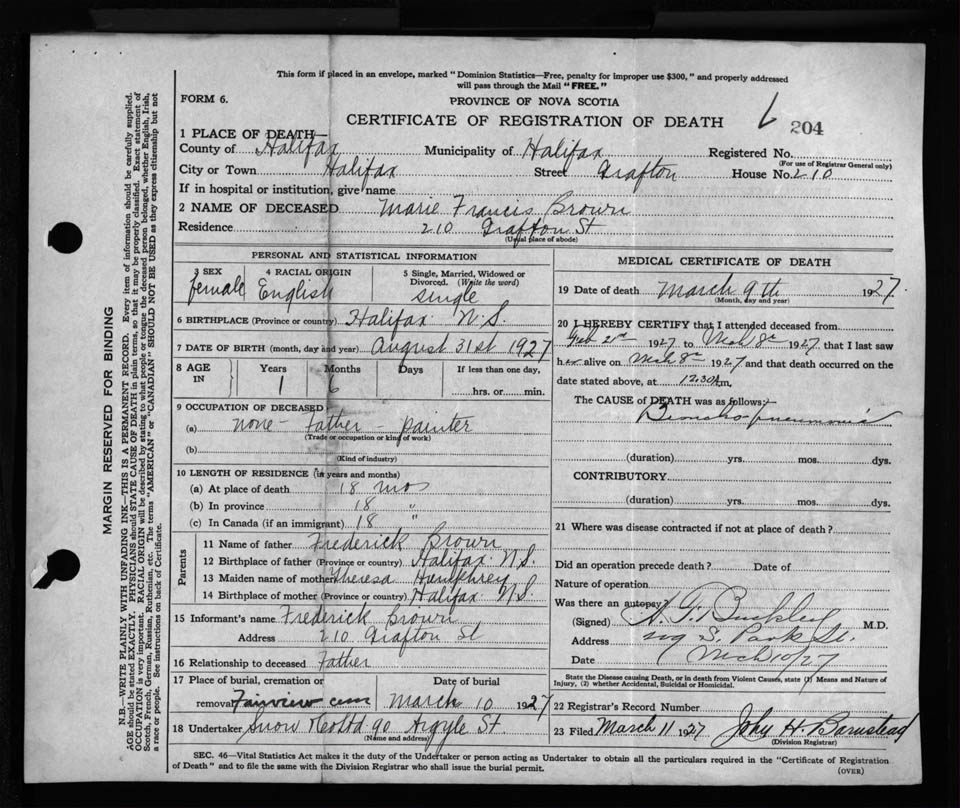 This form if placed in an envelope, marked "Dominion Statistics—Free, penalty for improper use $300," and properly addressed
will pass through the Mail "FREE."
FORM 6.
PROVINCE OF NOVA SCOTIA
CERTIFICATE OF REGISTRATION OF DEATH
204
1 PLACE OF DEATH—
County of Halifax Municipality of Halifax Registered No.
(For use of Registrar General only)
City or Town Halifax Street Grafton House No. 210
If in hospital or institution, give name
2 NAME OF DECEASED Marie Francis Brown
Residence 210 Grafton St
(Usual place of abode)
PERSONAL AND STATISTICAL INFORMATION
3 SEX 4 RACIAL ORIGIN 5 Single, Married, Widowed or
Divorced. (Write the word)
female English single
6 BIRTHPLACE (Province or country) Halifax N.S.
7 DATE OF BIRTH (month, day and year) August 31st 1927
8 AGE IN Years Months Days If less than one day,
1 6 hrs. or min.
9 OCCUPATION OF DECEASED
(a) none - Father - painter
(Trade or occupation or kind of work)
(b)
(Kind of industry)
10 LENGTH OF RESIDENCE (in years and months)
(a) At place of death 18 mos
(b) In province 18 "
(c) In Canada (if an immigrant) 18 "
Parents
11 Name of father Frederick Brown
12 Birthplace of father (Province or country) Halifax N.S.
13 Maiden name of mother Theresa Humphrey
14 Birthplace of mother (Province or country) Halifax N.S.
15 Informant's name Frederick Brown
Address 210 Grafton St
16 Relationship to deceased Father
17 Place of burial, cremation or Date of burial
removal Fairview cem March 10 1927
18 Undertaker Snow & Co Ltd 90 Argyle St
(Name and address)
MEDICAL CERTIFICATE OF DEATH
19 Date of death March 9th 1927.
(Month, day and year)
20 I HEREBY CERTIFY that I attended deceased from
1927 to Mch 8th 1927, that I last saw
her alive on Mch 8th 1927 and that death occurred on the
date stated above, at 12.30 m.
The CAUSE of DEATH was as follows:—
Broncho pneumonia
(duration) yrs. mos. dys.
CONTRIBUTORY
(duration) yrs. mos. dys.
21 Where was disease contracted if not at place of death?
Did an operation precede death? Date of
Nature of operation
Was there an autopsy?
(Signed) Buckley M.D.
Address S. Park St.
Date Mch 10/27
State the Disease causing Death, or in death from Violent Causes, state (1) Means and Nature of
Injury, (2) whether Accidental, Suicidal or Homicidal.
22 Registrar's Record Number
23 Filed March 11 1927 John H. Barnstead
(Division Registrar)
SEC. 46—Vital Statistics Act makes it the duty of the Undertaker or person acting as Undertaker to obtain all the particulars required in the "Certificate of Registration
of Death" and to file the same with the Division Registrar who shall issue the burial permit.
(OVER)
MARGIN RESERVED FOR BINDING
N.B.—WRITE PLAINLY WITH UNFADING INK—THIS IS A PERMANENT RECORD. Every item of information should be carefully supplied.
AGE should be stated EXACTLY. PHYSICIANS should STATE CAUSE OF DEATH in plain terms, so that it may be properly classified. Exact statement of
OCCUPATION is very important. RACIAL ORIGIN will be described by stating to what people or tongue the deceased person belonged, whether English, Irish,
Scotch, French, German, Russian, Ruthenian, etc. The terms "AMERICAN" or "CANADIAN" SHOULD NOT BE USED as they express citizenship but not
a race or people. See instructions on back of Certificate.